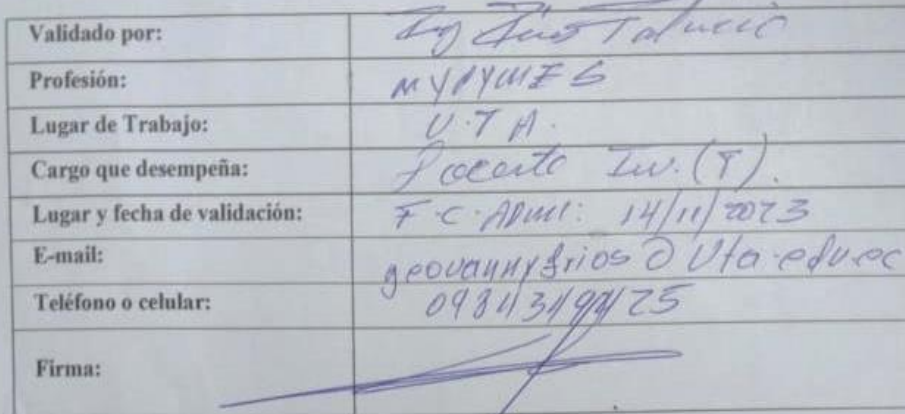 Validado por: Ing
Profesión: MYPYMES
Lugar de Trabajo: U.T.A.
Cargo que desempeña: Docente Inv. (T).
Lugar y fecha de validación: F.C. ADMI: 14/11/2023
E-mail: geovannyfrios@uta.edu.ec
Teléfono o celular:
Firma: